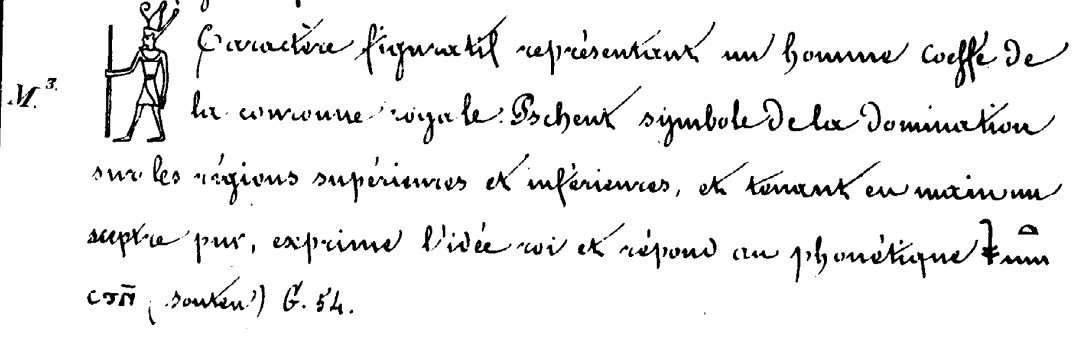 M.3. Caractère figuratif représentant un homme coeffé de
la couronne royale Pschent symbole de la domination
sur les régions supérieures et inférieures, et tenant en main un
sceptre pur, exprime l'idée roi et répond au phonétique
ⲥⲧⲛ̄ (souten) G. 54.